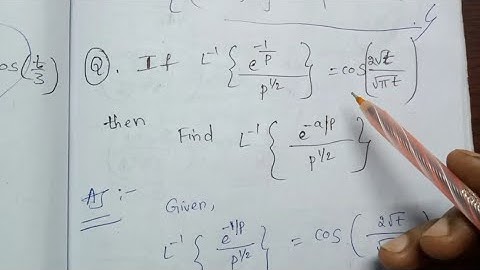 cos(t/3)
Q. If L⁻¹ { e^(-1/p) / p^(1/2) } = cos( 2√t / √πt )
then Find L⁻¹ { e^(-a/p) / p^(1/2) }
As :-
Given,
L⁻¹ { e^(-1/p) / p^(1/2) } = cos ( 2√t /